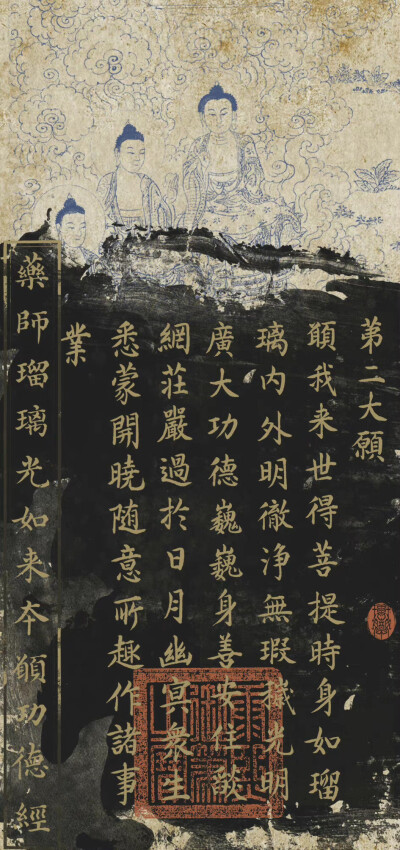 第二大願
願我来世得菩提時身如瑠
璃内外明徹浄無瑕穢光明
廣大功德巍巍身善安住燄
網莊嚴過於日月幽冥衆生
悉蒙開曉随意所趣作諸事
業
藥師瑠璃光如来夲願功德經